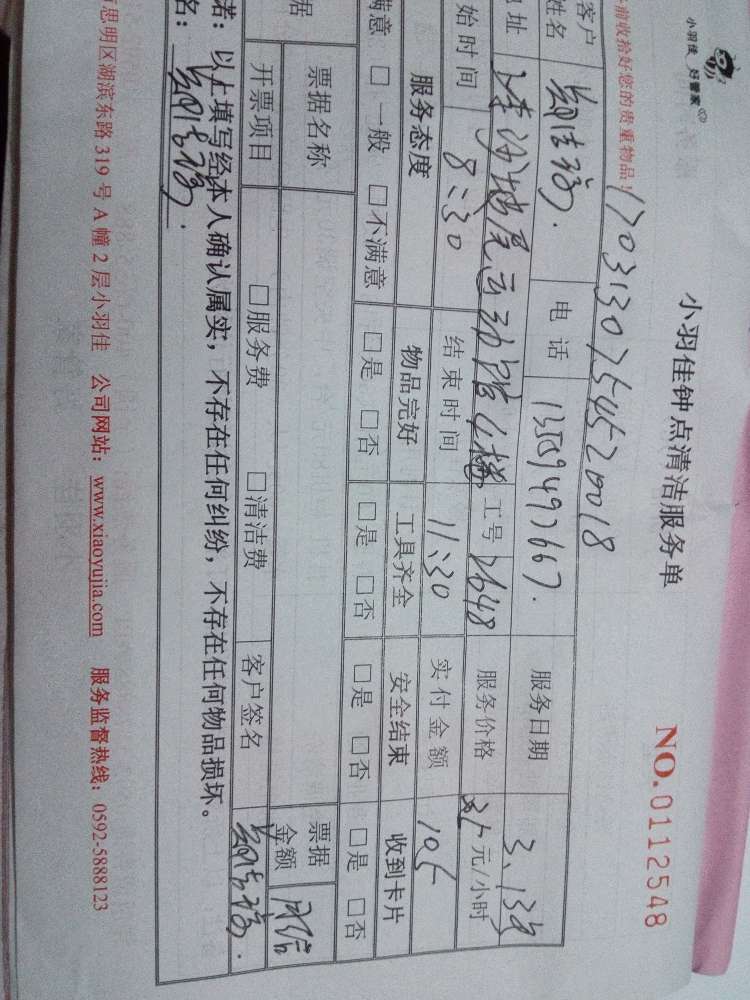 小羽佳 好管家
小羽佳钟点清洁服务单
NO.0112548
前收拾好您的贵重物品！
1703130754520018
客户姓名 电话 服务日期 3.13
地址 工号 2648 服务价格 35 元/小时
始时间 8:30 结束时间 11:30 实付金额 105
服务态度 物品完好 工具齐全 安全结束 收到卡片
满意 □ 一般 □ 不满意 □是 □否 □是 □否 □是 □否 □是 □否
据 票据名称 票据金额
开票项目 □服务费 □清洁费 客户签名
者：以上填写经本人确认属实，不存在任何纠纷，不存在任何物品损坏。
名：
思明区湖滨东路 319 号 A 幢 2 层小羽佳 公司网站：www.xiaoyujia.com 服务监督热线：0592-5888123